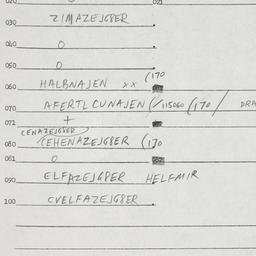 020 021
030 ZIMAZEJGBER
040 0
050 0
(170
060 HALBNAJEN xx
070 AFERTL CUNAJEN (/115060 (170 / DRA
071 +
CENAZEJGBER
080 CEHENAZEJGBER (170
081 0
090 ELFAZEJGBER HELFMIR
100 CVELFAZEJGBER